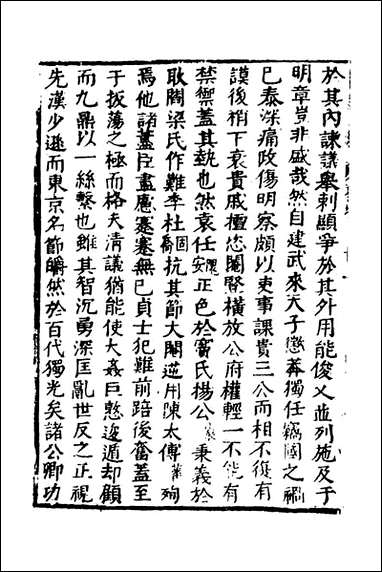 於其内諫議舉刺顯爭於其外用能俊乂並列施及于
明章豈非盛哉然自建武來天子懲莽獨任竊國之禍
已泰深痛政傷明察頗以吏事課責三公而相不復有
謨後稍下衰貴戚擅恣閹豎橫放公府權輕一不能有
禁禦蓋其埶也然袁任安隗正色於竇氏楊公震秉義於
耿閻梁氏作難李杜固喬抗其節大閹逆用陳太傅蕃殉
焉他諸藎臣盡慮蹇蹇無已貞士犯難前踣後奮蓋至
于扳蕩之極而格天清議猶能使大姦巨憝逡遁却顧
而九鼎以一絲繫也雖其智沉勇深匡亂世反之正視
先漢少遜而東京名節皭然於百代獨光矣諸公卿功